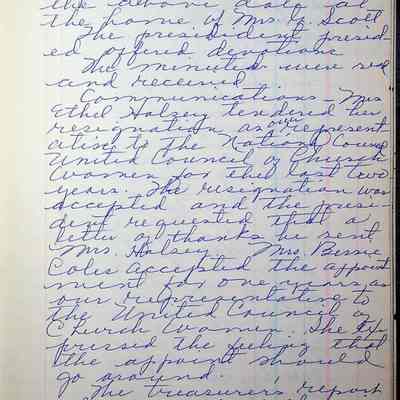 the above date at
the home of Mrs. G. Scott
The president presid-
ed offered devotions
The minutes were red
and received
Communications - Mrs
Ethel Halsey tendered her
resignation as our represent
ative to the National Council
United Council of Church
Women for the last two
years. The resignation was
accepted and the presi-
dent requested that a
letter of thanks be sent
Mrs. Halsey. Mrs. Bessie
Coles accepted the appoint
ment for one year, as
our representative to
the United Council of
Church Women. She ex-
pressed the feeling that
the appoint should
go around.
The treasurer's report